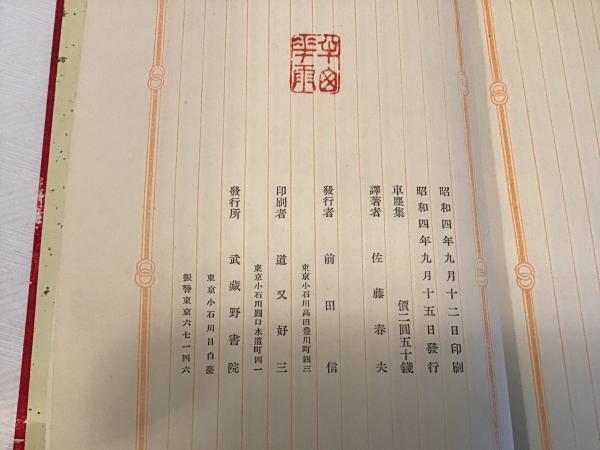 昭和四年九月十二日印刷
昭和四年九月十五日發行
車塵集
價二圓五十錢
譯著者 佐藤春夫
發行者 前田信
東京小石川高田豊川町四三
印刷者 道又好三
東京小石川關口水道町四一
發行所 武藏野書院
東京小石川目白臺
振替東京六七一四六